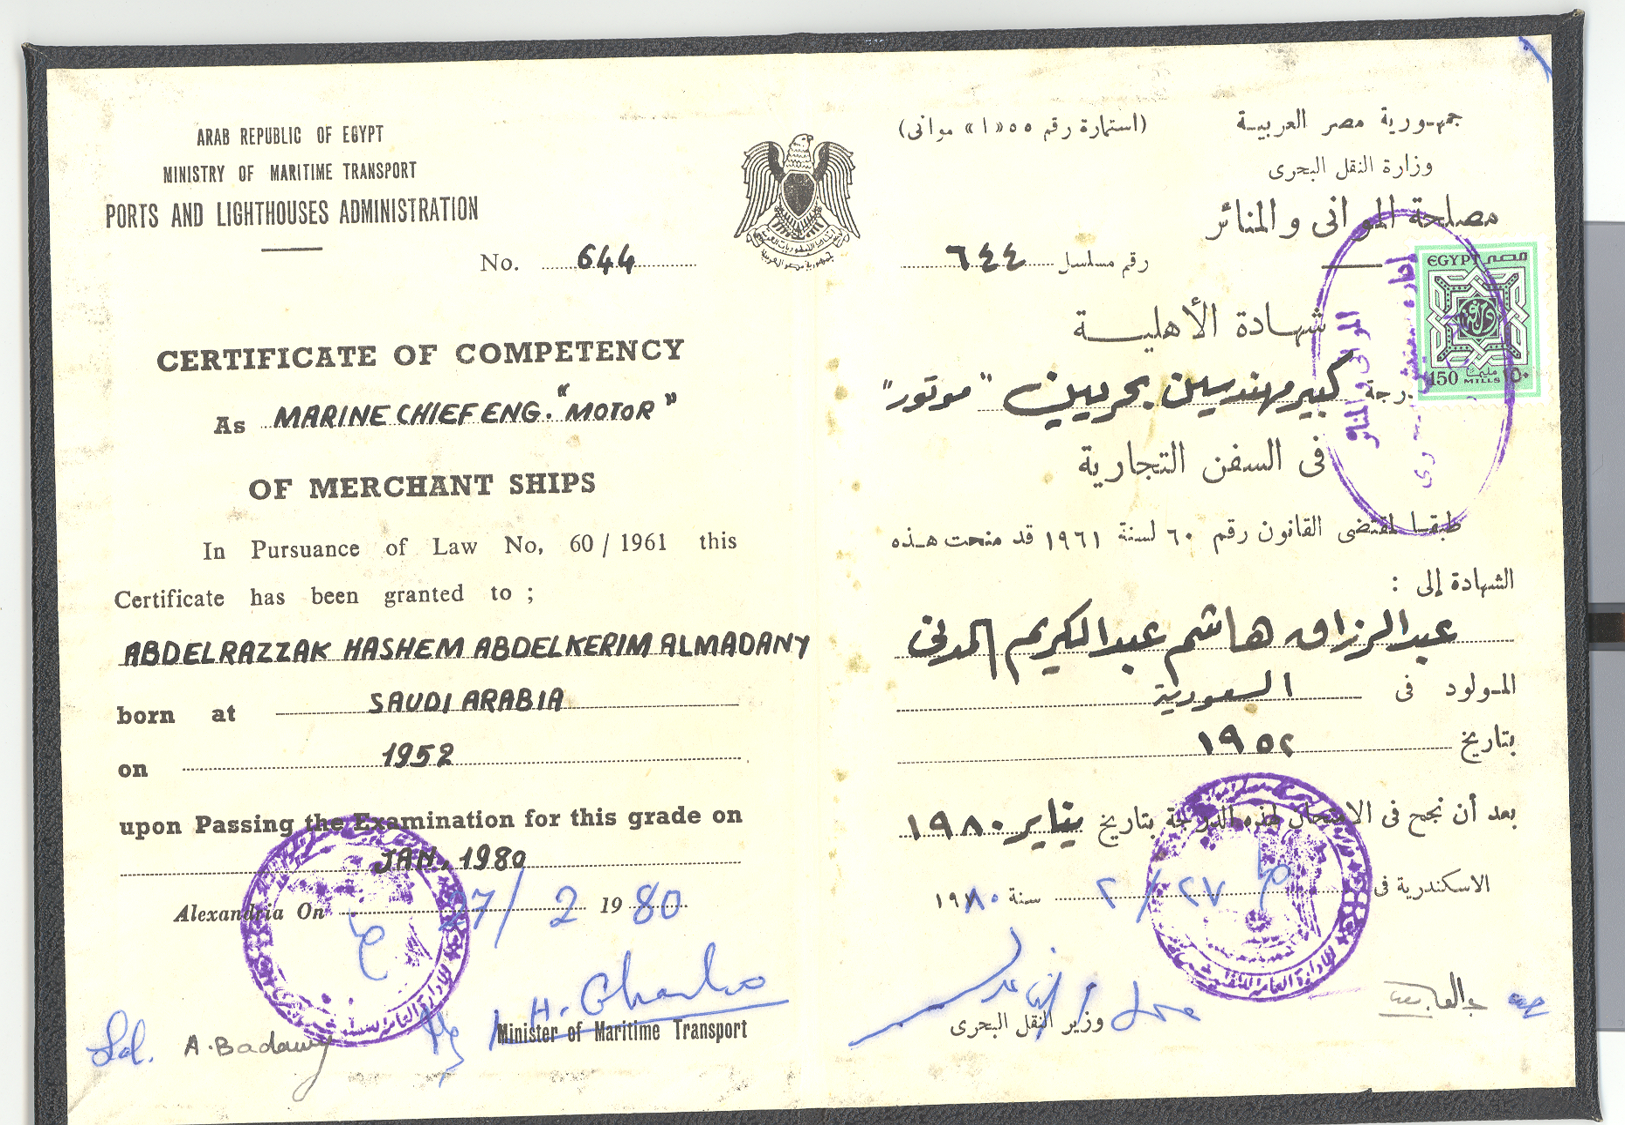 ARAB REPUBLIC OF EGYPT
MINISTRY OF MARITIME TRANSPORT
PORTS AND LIGHTHOUSES ADMINISTRATION
No. 644
CERTIFICATE OF COMPETENCY
As MARINE CHIEF ENG. "MOTOR"
OF MERCHANT SHIPS
In Pursuance of Law No, 60 / 1961 this
Certificate has been granted to ;
ABDELRAZZAK HASHEM ABDELKERIM ALMADANY
born at SAUDI ARABIA
on 1952
upon Passing the Examination for this grade on
JAN. 1980
Alexandria On 27/2 1980
A. Badawy
Minister of Maritime Transport
جمهورية مصر العربية
(استمارة رقم ٥٥ «ا» موانى)
وزارة النقل البحرى
مصلحة الموانى والمنائر
رقم مسلسل ٦٤٤
EGYPT مصر
150 MILLS مليما ١٥٠
شهادة الأهلية
درجة كبير مهندسين بحريين "موتور"
فى السفن التجارية
طبقا لمقتضى القانون رقم ٦٠ لسنة ١٩٦١ قد منحت هذه
الشهادة إلى :
عبد الرزاق هاشم عبد الكريم المدنى
المولود فى السعودية
بتاريخ ١٩٥٢
بعد أن نجح فى الامتحان لهذه الدرجة بتاريخ يناير ١٩٨٠
الاسكندرية فى ٢٧ / ٢ سنة ١٩٨٠
وزير النقل البحرى